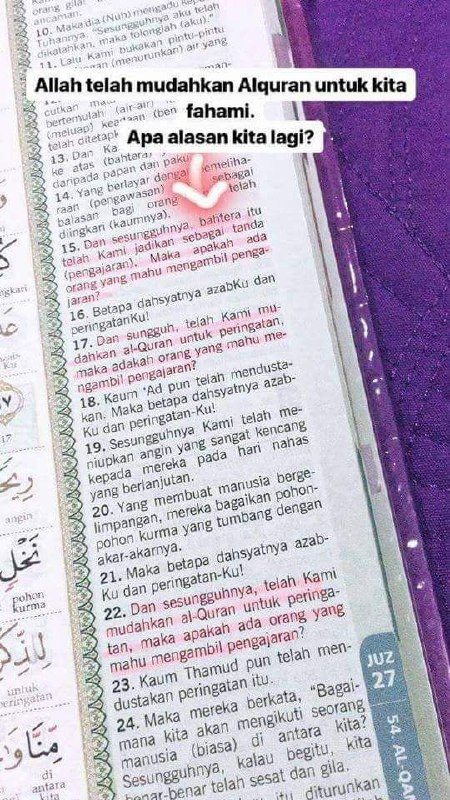 orang gila
ancaman.
10. Maka dia (Nuh) mengadu kepada
Tuhannya, "Sesungguhnya aku telah
dikalahkan, maka tolonglah (aku)."
11. Lalu Kami bukakan pintu-pintu
(menurunkan) air yang
Allah telah mudahkan Alquran untuk kita
fahami.
Apa alasan kita lagi?
bertemulah (air-air)
(meluap)
telah ditetap
13. Dan Ka
ke atas (bahtera)
daripada papan dan paku
14. Yang berlayar denga emeliha-
raan (pengawasan) sebagai
balasan bagi orang telah
diingkan (kaumnya).
15. Dan sesungguhnya, bahtera itu
telah Kami jadikan sebagai tanda
(pengajaran). Maka apakah ada
orang yang mahu mengambil penga-
jaran?
16. Betapa dahsyatnya azabKu dan
peringatanKu!
17. Dan sungguh, telah Kami mu-
dahkan al-Quran untuk peringatan,
maka adakah orang yang mahu me-
ngambil pengajaran?
18. Kaum 'Ad pun telah mendusta-
kan. Maka betapa dahsyatnya azab-
Ku dan peringatan-Ku!
19. Sesungguhnya Kami telah me-
niupkan angin yang sangat kencang
kepada mereka pada hari nahas
yang berlanjutan.
20. Yang membuat manusia berge-
limpangan, mereka bagaikan pohon-
pohon kurma yang tumbang dengan
akar-akarnya.
21. Maka betapa dahsyatnya azab-
Ku dan peringatan-Ku!
22. Dan sesungguhnya, telah Kami
mudahkan al-Quran untuk peringa-
tan, maka apakah ada orang yang
mahu mengambil pengajaran?
23. Kaum Thamud pun telah men-
dustakan peringatan itu.
24. Maka mereka berkata, "Bagai-
mana kita akan mengikuti seorang
manusia (biasa) di antara kita?
Sesungguhnya, kalau begitu, kita
benar-benar telah sesat dan gila.
itu diturunkan
JUZ
27
54 AL-QA
17
angin
نَخْلٍ
pohon
kurma
لِلذِّكْ
untuk
peringatan
مِّنَّا وَ
di
antara
kita